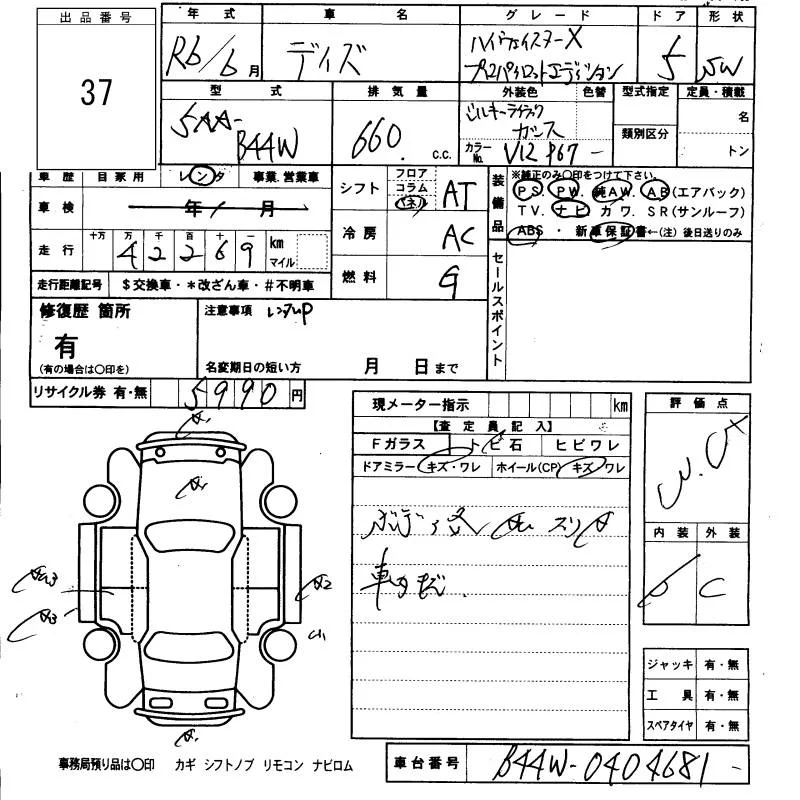 出品番号 年式 車名 グレード ドア 形状
37 R6/6月 デイズ ハイウェイスターX
プロパイロットエディション 5 5W
型式 排気量 外装色 色替 型式指定 定員・積載
5AA-
B44W 660 c.c. カラーNo. 類別区分 名
トン
車歴 自家用 レンタ 事業.営業車
シフト フロア コラム パネル AT
装備品 ※純正のみ〇印をつけて下さい。
PS. PW. 純AW. AB(エアバック)
TV. ナビ カワ. SR(サンルーフ)
ABS ・ 新車保証書←(注) 後日送りのみ
車検 年 月
冷房 AC
走行 十万 万 千 百 十 一 km マイル
42269
燃料 G
セールスポイント
走行距離記号 $交換車・*改ざん車・#不明車
修復歴 箇所
有
(有の場合は〇印を)
注意事項 レンタUP
名変期日の短い方 月 日まで
リサイクル券 有・無 5990円
現メーター指示 km
【査定員記入】
Fガラス トビ石 ヒビワレ
ドアミラー キズ・ワレ ホイール(CP) キズ ワレ
車内
評価点
内装 外装
C
A2
ジャッキ 有・無
工具 有・無
スペアタイヤ 有・無
事務局預り品は〇印 カギ シフトノブ リモコン ナビロム
車台番号 B44W-0404681